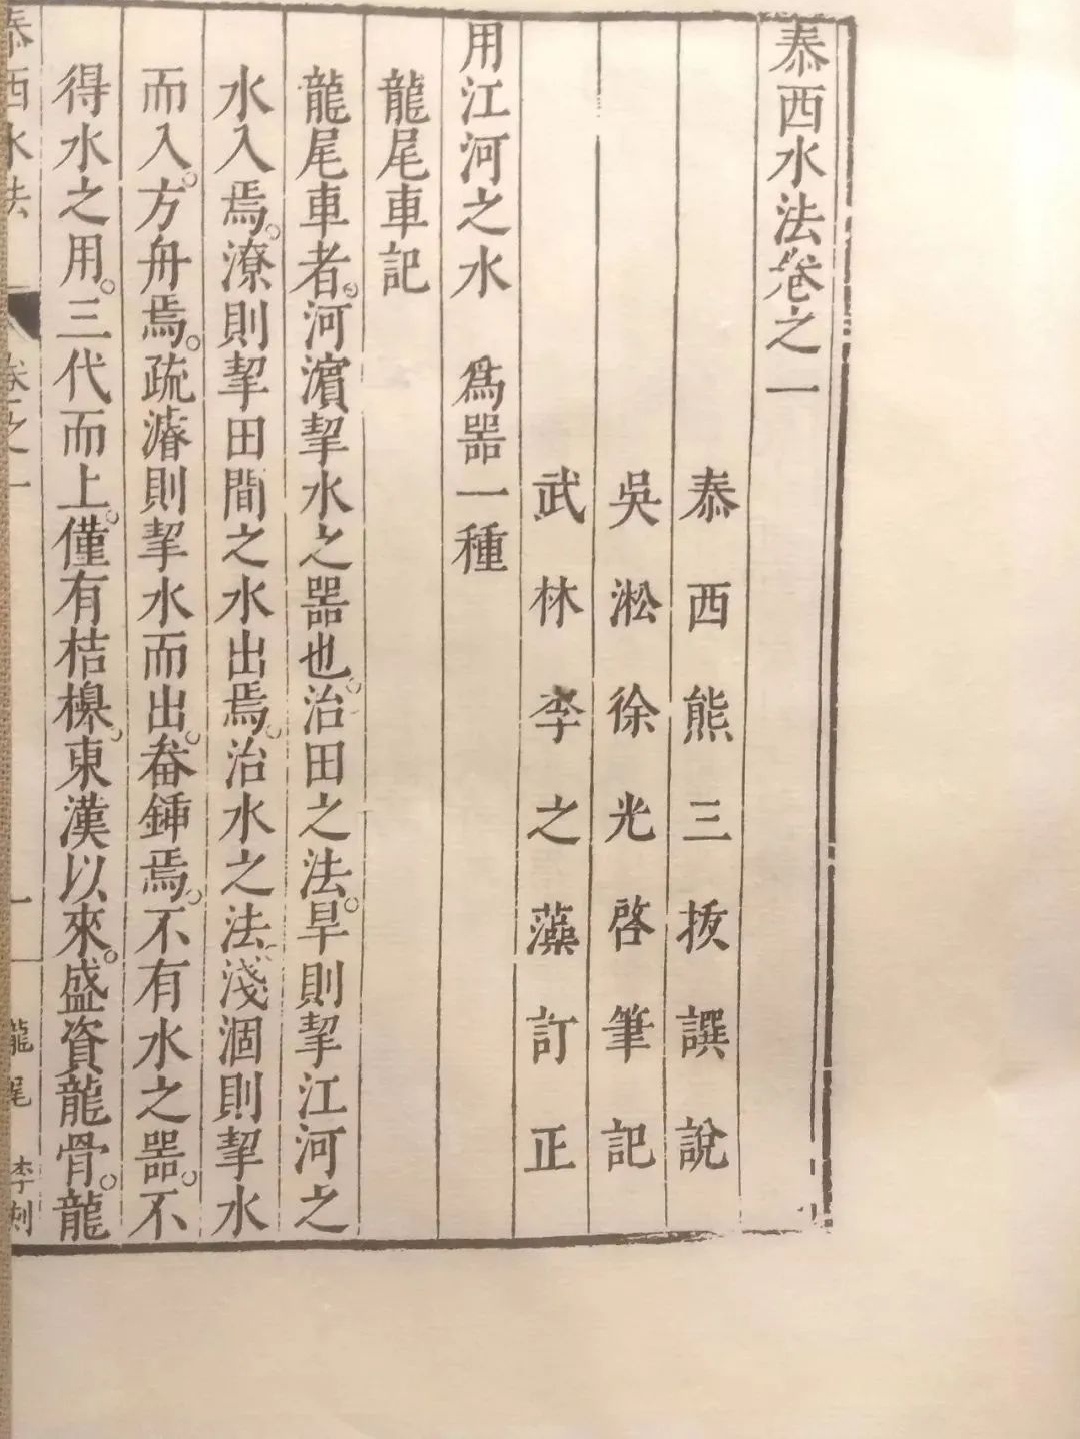 泰西水法卷之一
泰西熊三拔譔說
吳淞徐光啓筆記
武林李之藻訂正
用江河之水　爲器一種
龍尾車記
龍尾車者。河濵挈水之器也。治田之法。旱則挈江河之
水入焉。潦則挈田間之水出焉。治水之法。淺涸則挈水
而入。方舟焉。疏濬則挈水而出。畚鍤焉。不有水之器。不
得水之用。三代而上。僅有桔橰。東漢以來。盛資龍骨。龍
泰西水法　卷之一　一　龍尾　李刻